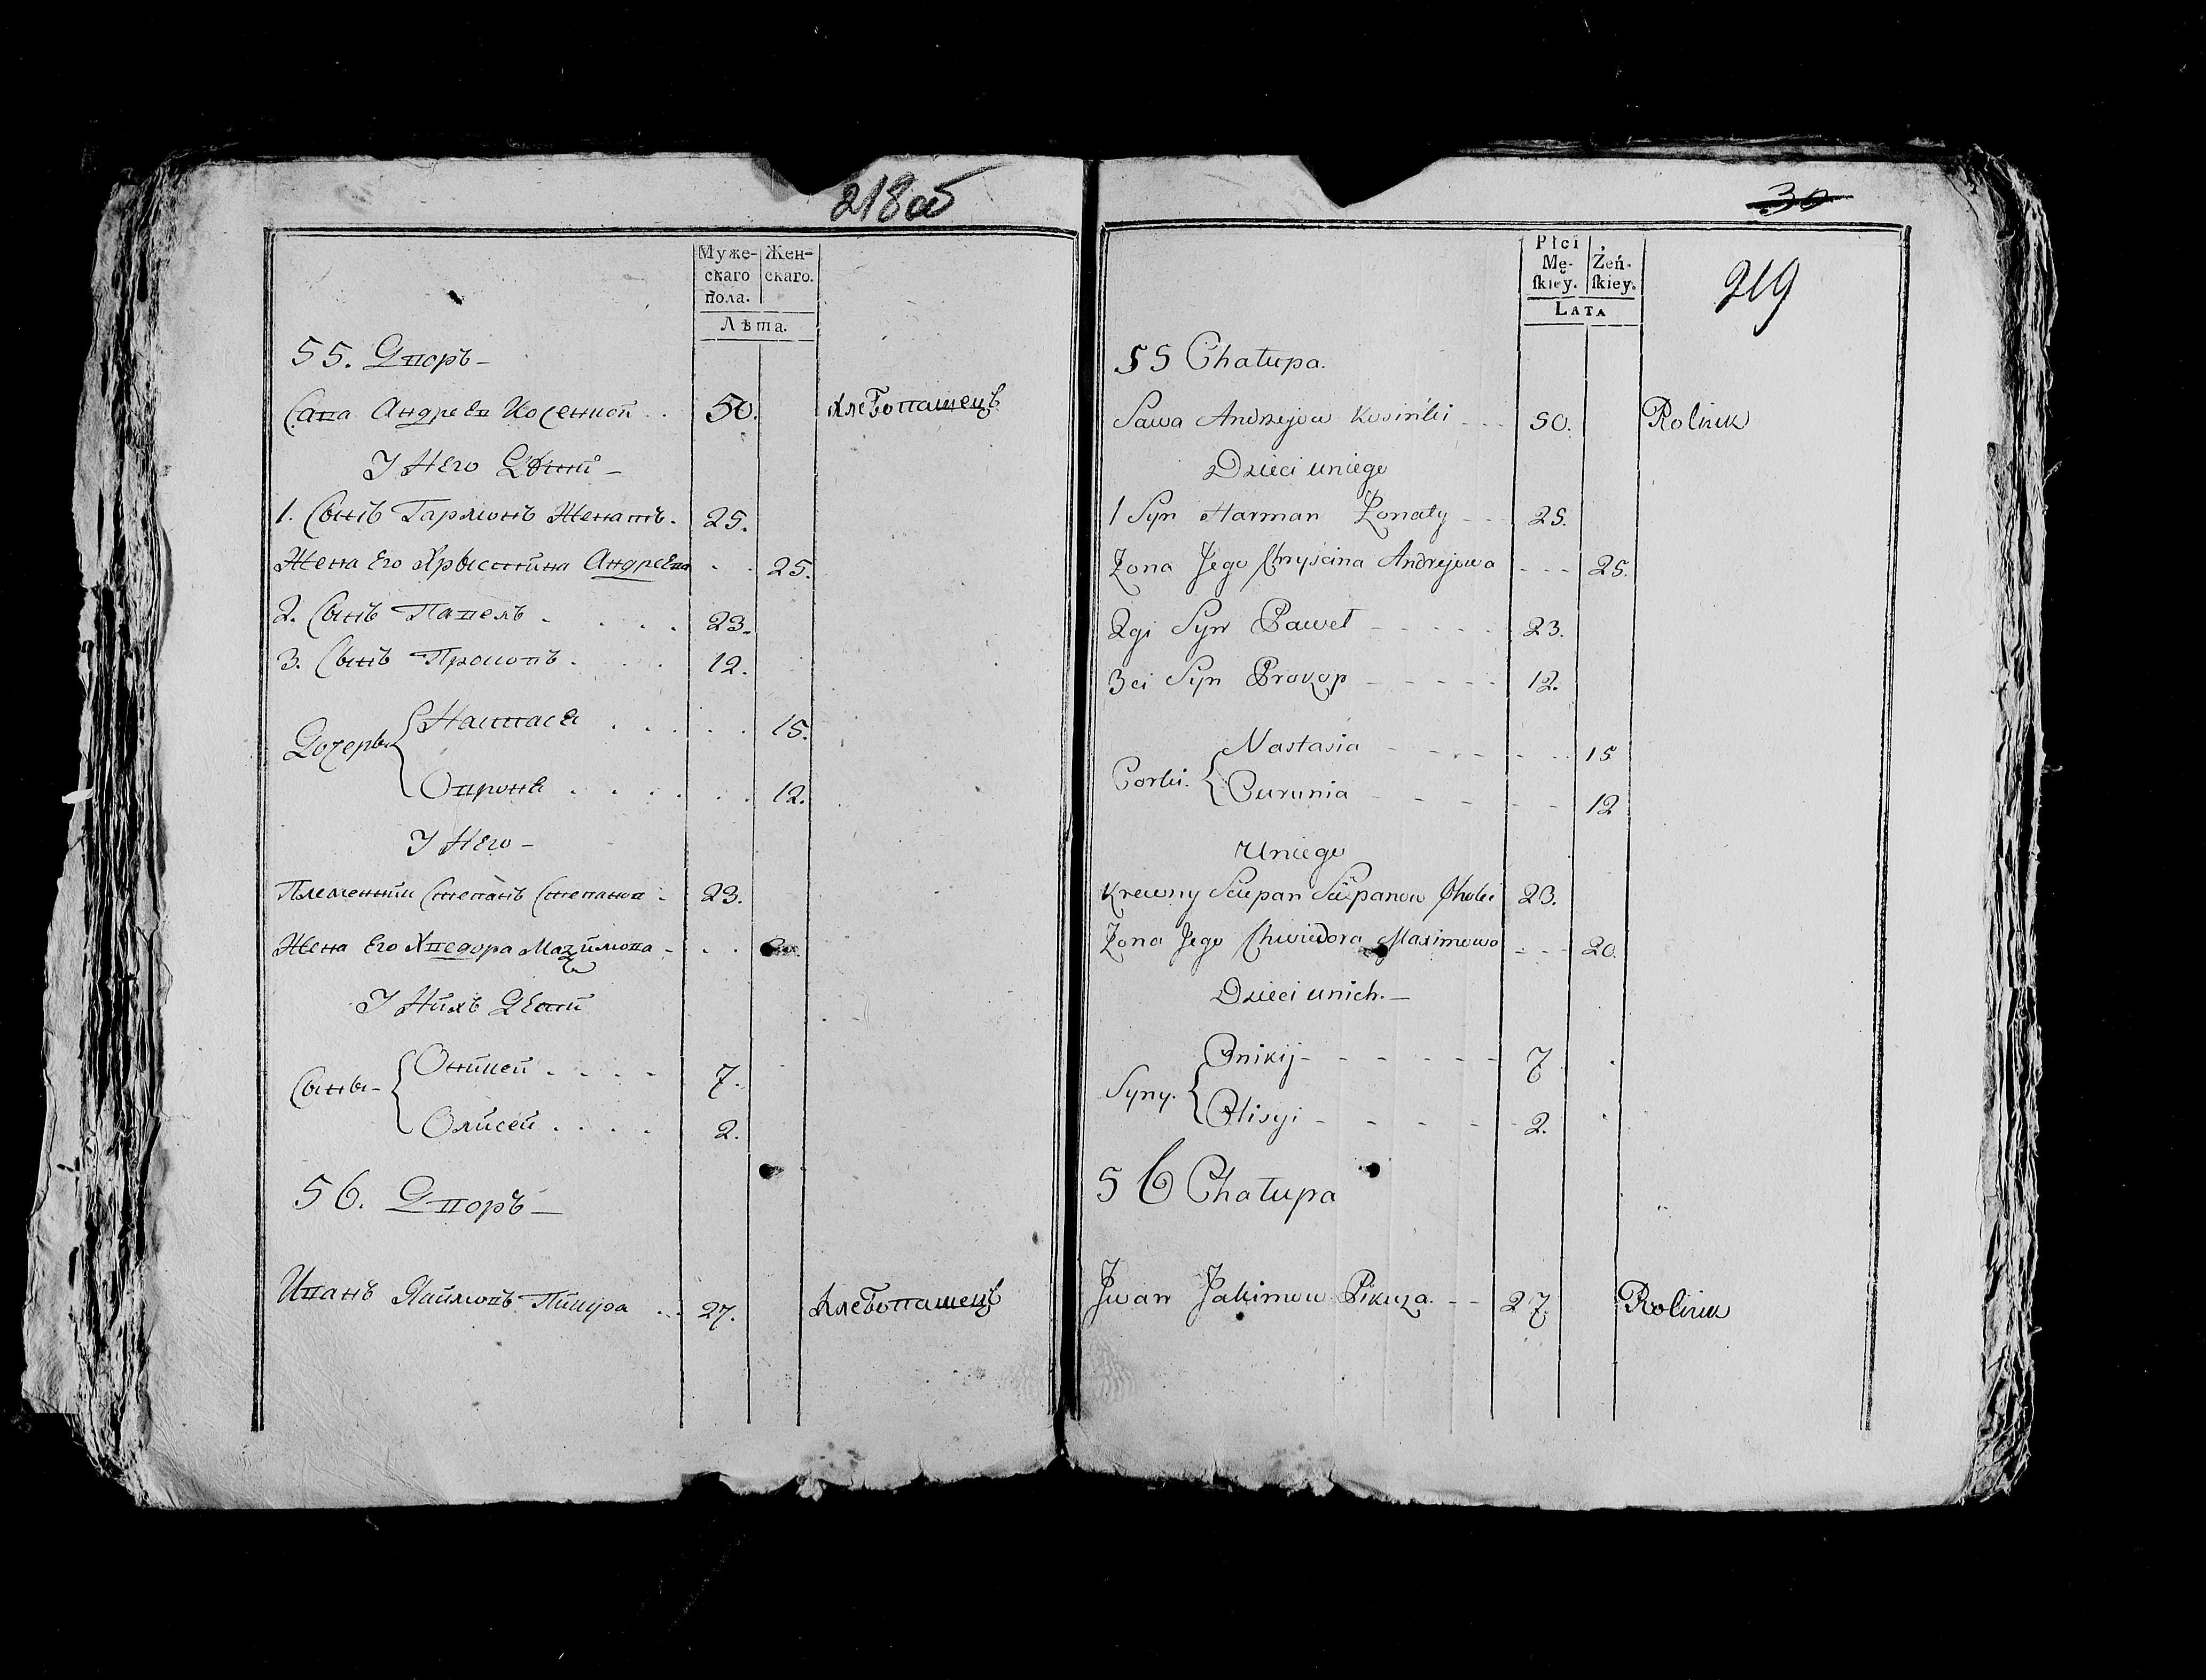 218об
Муже-
скаго
пола.
Жен-
скаго.
Лѣта.
55. Дворъ –
Сава Андреев Косецкой . . 50. хлебопашецъ
У Него Дѣти –
1. Сынъ Гармонъ Женатъ . 25.
Жена Его Хрыстина Андреева . . 25.
2. Сынъ Павелъ . . . . 23.
3. Сынъ Прокопъ . . . 12.
Дочеры { Настася . . . . . 15.
Опроня . . . . . . 12.
У Него –
Племенник Степанъ Степанов . 23.
Жена Его Хведора Мазимова - . .
У Нихъ Дети
Сыны – { Оникей . . . . 7.
Олисей . . . . 2.
56. Дворъ –
Иванъ Якимовъ Пикуза . . 27. Хлебопашецъ
30
219
Płci
Mę-
ſkiey.
Żeń-
ſkiey.
LATA
55 Chałupa.
Sawa Andrzejow Kosinſki - - - 50. Rolnik
Dzieci uniego
1 Syn Harman Żonaty - - - 25.
Żona Jego Chryścina Andrejowa - - - 25.
2gi Syn Paweł - - - - - 23.
3ci Syn Prokop - - - - - 12.
Corki. { Nastasia - - - - - - 15
Eurunia - - - - - 12
Uniego
Krewny Sciepan Sciepanow 23.
Żona Jego Chwiedora Maximowa - - - 20.
Dzieci unich. –
Syny. { Onikij - - - - - - 7
Olisyi - - - - - 2.
56 Chałupa
Jwan Jakimow Pikuza. - - 27. Rolnik